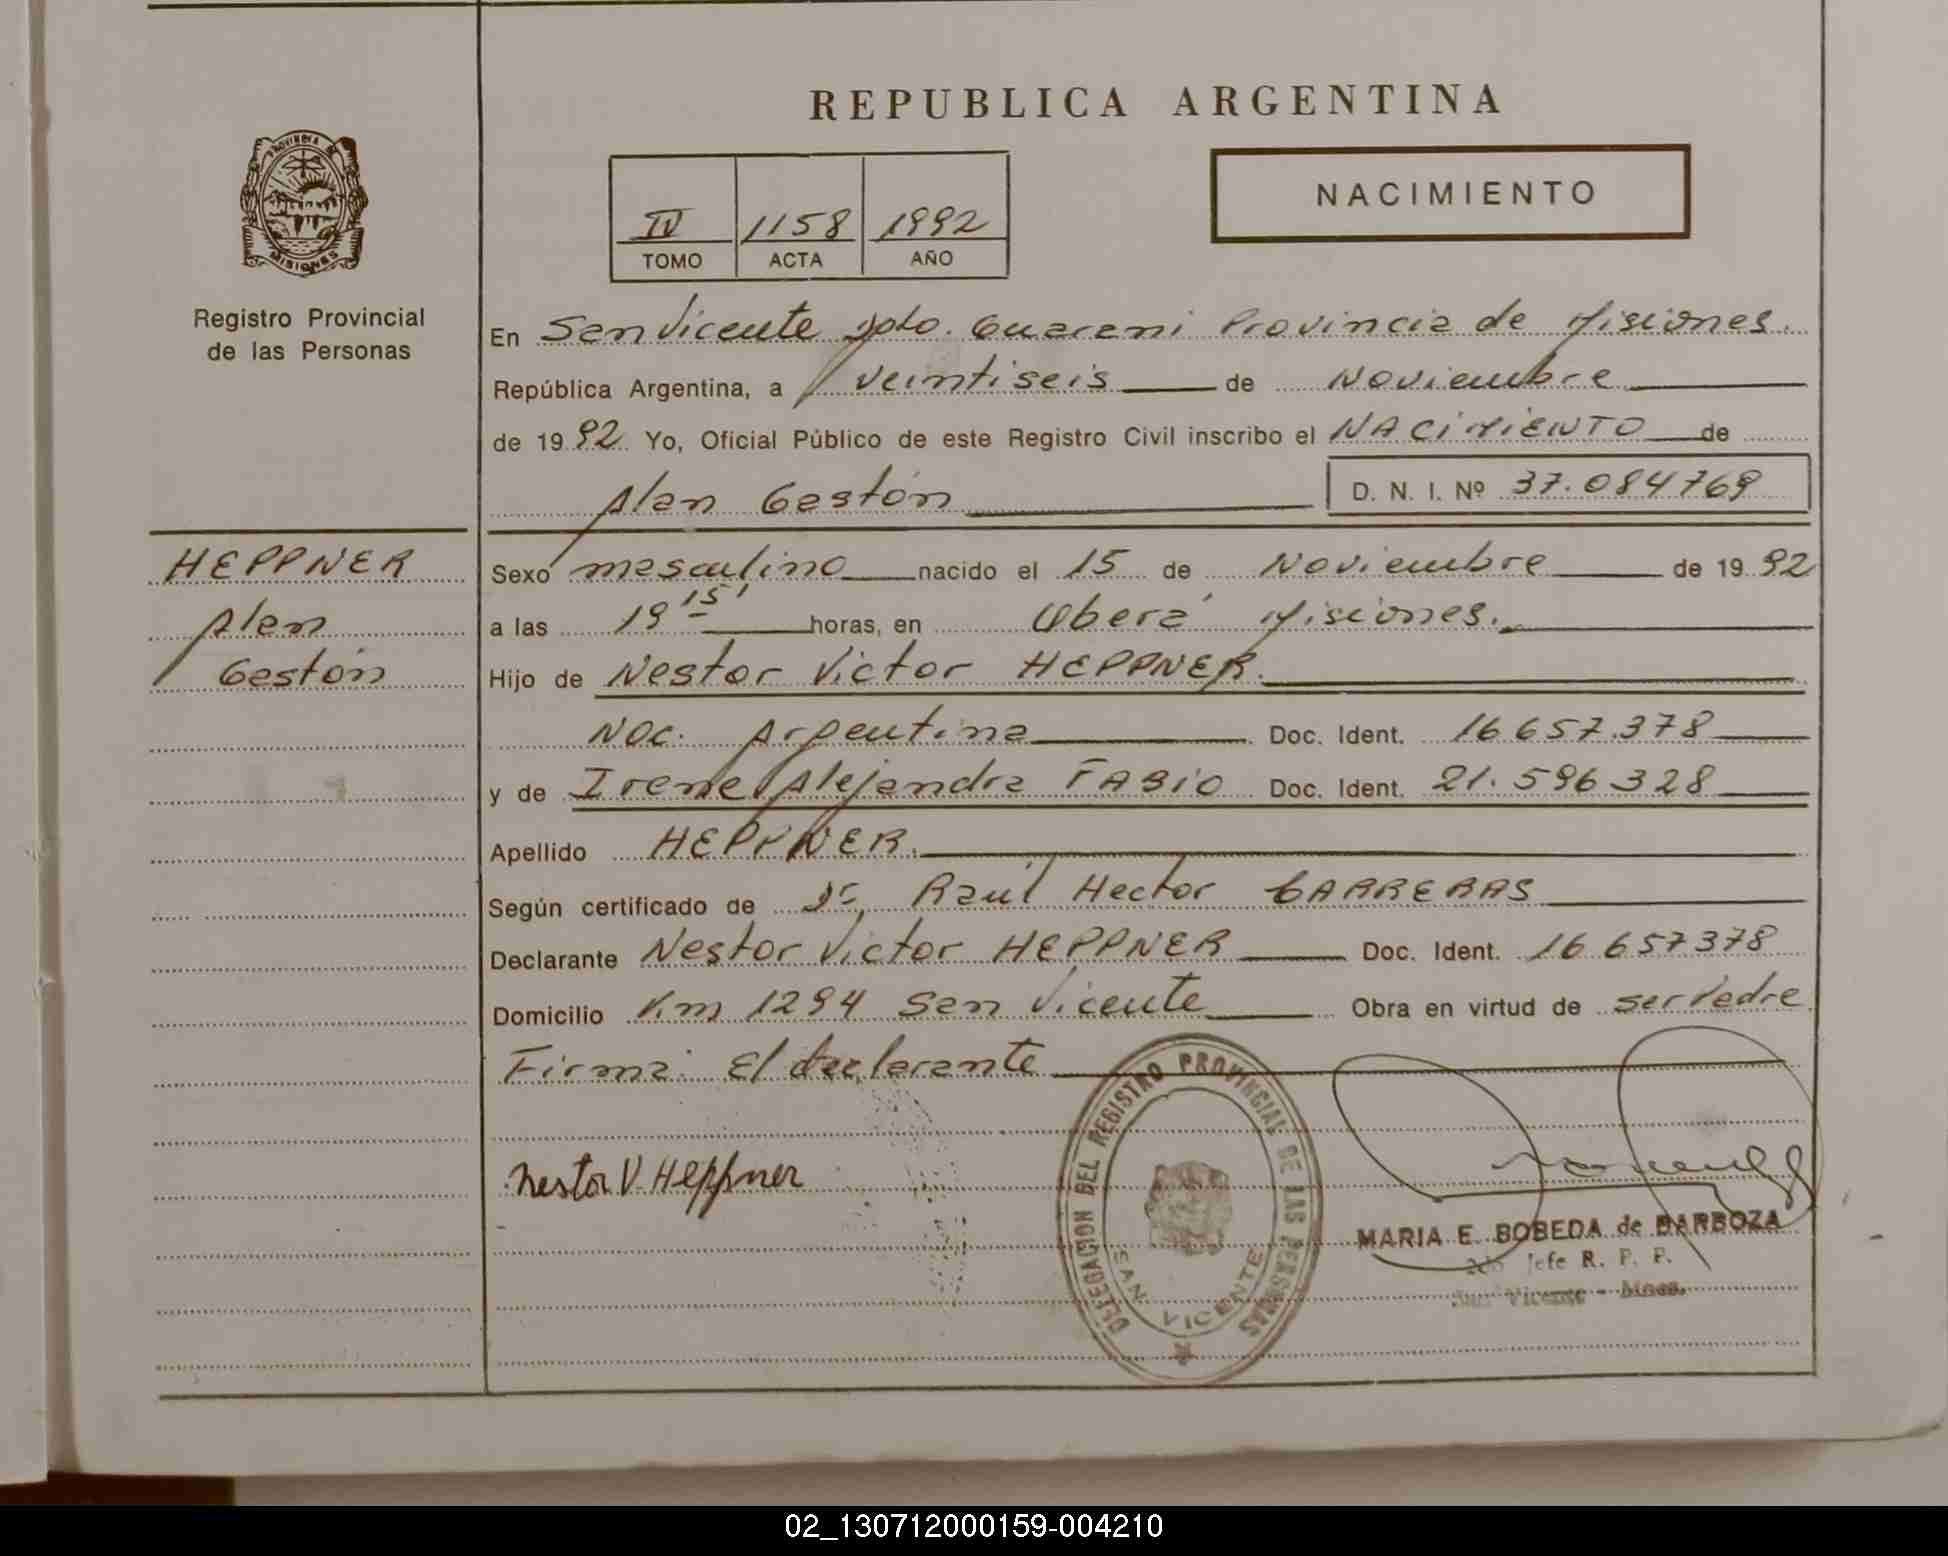 REPUBLICA ARGENTINA
PROVINCIA DE
MISIONES
Registro Provincial
de las Personas
IV 1158 1992
TOMO ACTA AÑO
NACIMIENTO
En San Vicente Dpto. Guarani Provincia de Misiones.
República Argentina, a veintiseis de Noviembre
de 1992 Yo, Oficial Público de este Registro Civil inscribo el NACIMIENTO de
Alan Gastón D. N. I. Nº 37.084769
HEPPNER
Alan
Gastón
Sexo masculino nacido el 15 de Noviembre de 1992
a las 19 15' horas, en Oberá Misiones.
Hijo de Nestor Victor HEPPNER.
Nac. Argentina Doc. Ident. 16.657.378
y de Irene Alejandra FABIO Doc. Ident. 21.596.328
Apellido HEPPNER.
Según certificado de Dr. Raúl Hector CARRERAS
Declarante Nestor Victor HEPPNER Doc. Ident. 16.657378
Domicilio Km 1294 San Vicente Obra en virtud de ser Padre
Firma: El declarante
Nestor V. Heppner
DELEGACION DEL REGISTRO PROVINCIAL DE LAS PERSONAS
SAN VICENTE
MARIA E. BOBEDA de BARBOZA
2do Jefe R. P. P.
San Vicente - Mnes.
02_130712000159-004210